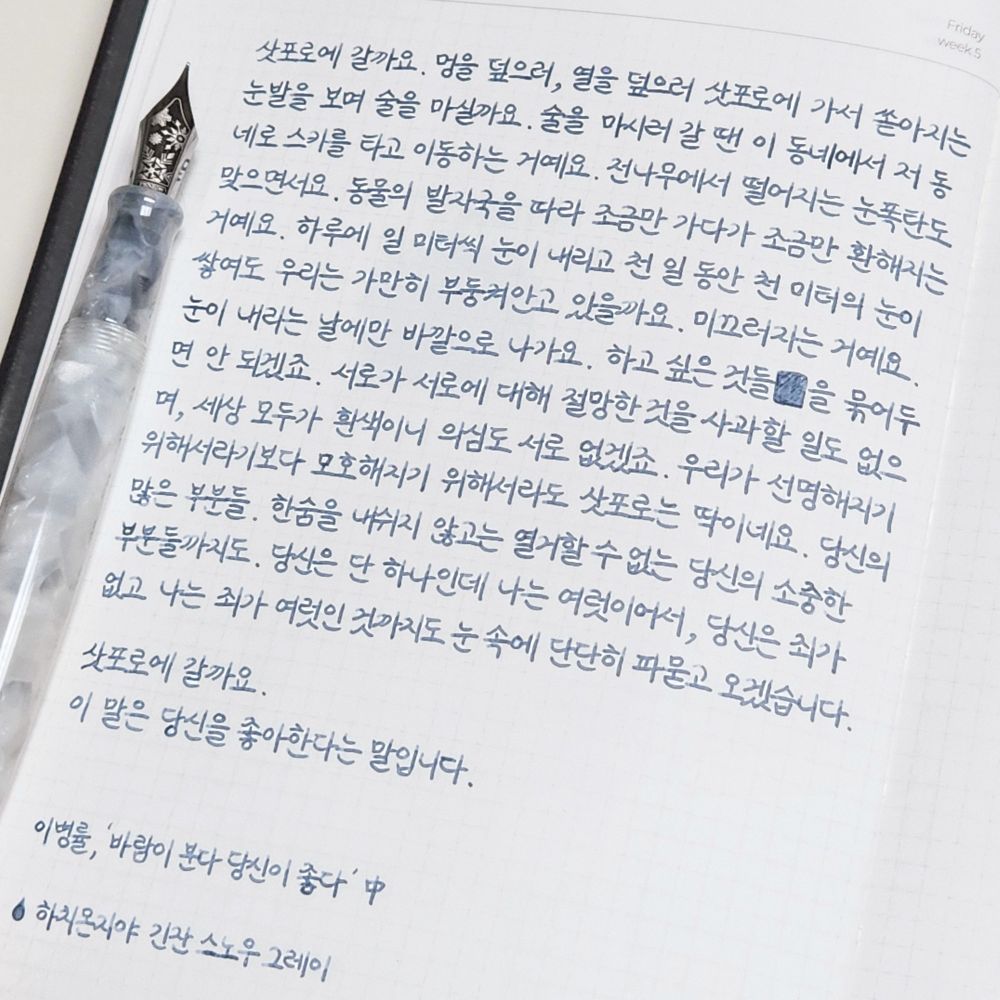 Friday
week 5
삿포로에 갈까요. 멍을 덮으러, 열을 덮으러 삿포로에 가서 쏟아지는
눈발을 보며 술을 마실까요. 술을 마시러 갈 땐 이 동네에서 저 동
네로 스키를 타고 이동하는 거예요. 전나무에서 떨어지는 눈폭탄도
맞으면서요. 동물의 발자국을 따라 조금만 가다가 조금만 환해지는
거예요. 하루에 일 미터씩 눈이 내리고 천 일 동안 천 미터의 눈이
쌓여도 우리는 가만히 부둥켜안고 있을까요. 미끄러지는 거예요.
눈이 내리는 날에만 바깥으로 나가요. 하고 싶은 것들을 묶어두
면 안 되겠죠. 서로가 서로에 대해 절망한 것을 사과할 일도 없으
며, 세상 모두가 흰색이니 의심도 서로 없겠죠. 우리가 선명해지기
위해서라기보다 모호해지기 위해서라도 삿포로는 딱이네요. 당신의
많은 부분들. 한숨을 내쉬지 않고는 열거할 수 없는 당신의 소중한
부분들까지도. 당신은 단 하나인데 나는 여럿이어서, 당신은 죄가
없고 나는 죄가 여럿인 것까지도 눈 속에 단단히 파묻고 오겠습니다.
삿포로에 갈까요.
이 말은 당신을 좋아한다는 말입니다.
이병률, '바람이 분다 당신이 좋다' 中
하치몬지야 긴잔 스노우 그레이